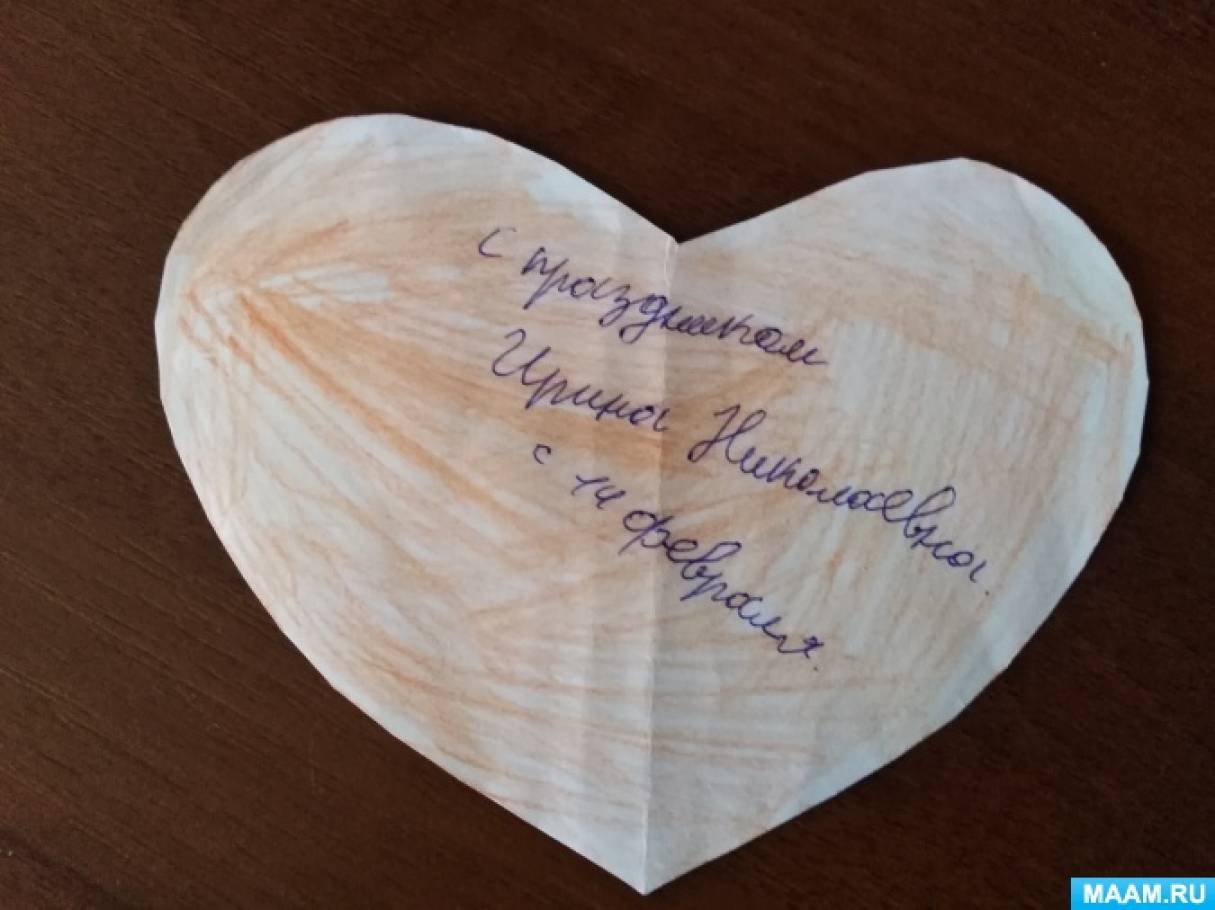 с праздником
Ирина Николаевна
с 14 февраля.
MAAM.RU